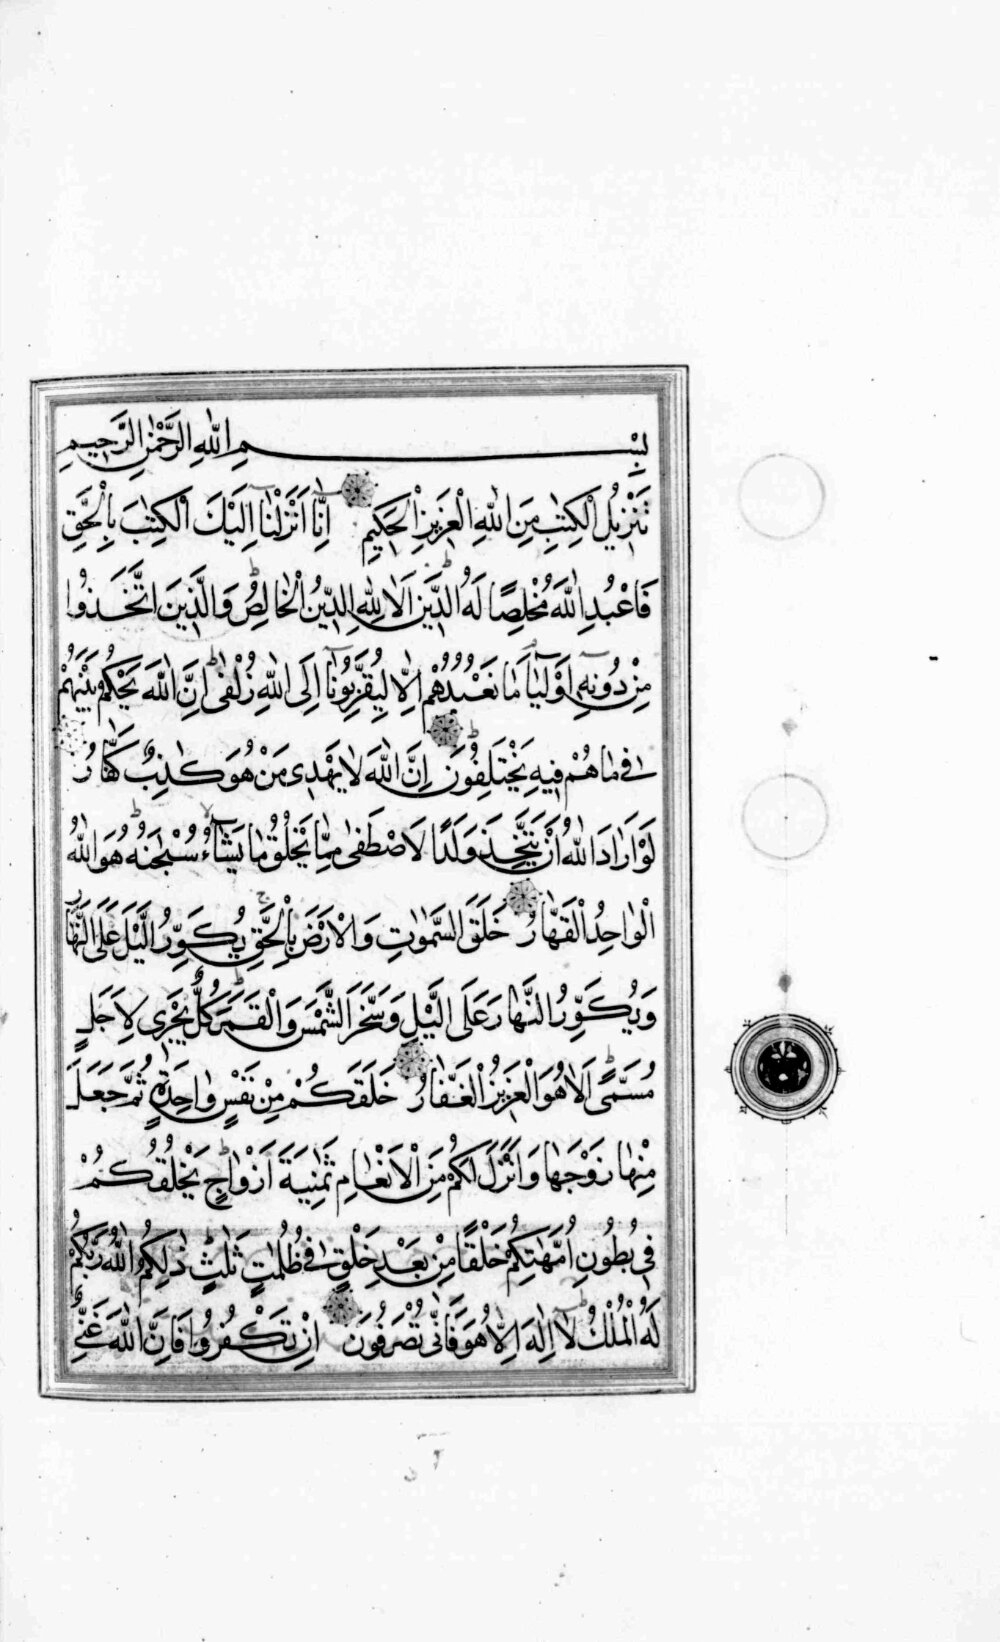 بِسْمِ اللّٰهِ الرَّحْمٰنِ الرَّحِيمِ
تَنْزِيلُ الْكِتٰبِ مِنَ اللّٰهِ الْعَزِيزِ الْحَكِيمِ اِنَّٓا اَنْزَلْنَٓا اِلَيْكَ الْكِتٰبَ بِالْحَقِّ
فَاعْبُدِ اللّٰهَ مُخْلِصًا لَهُ الدِّينَ اَلَا لِلّٰهِ الدِّينُ الْخَالِصُ وَالَّذِينَ اتَّخَذُوا
مِنْ دُونِهِ اَوْلِيَٓاءَ مَا نَعْبُدُهُمْ اِلَّا لِيُقَرِّبُونَٓا اِلَى اللّٰهِ زُلْفٰى اِنَّ اللّٰهَ يَحْكُمُ بَيْنَهُمْ
فِي مَا هُمْ فِيهِ يَخْتَلِفُونَ اِنَّ اللّٰهَ لَا يَهْدِي مَنْ هُوَ كَاذِبٌ كَفَّارٌ
لَوْ اَرَادَ اللّٰهُ اَنْ يَتَّخِذَ وَلَدًا لَاصْطَفٰى مِمَّا يَخْلُقُ مَا يَشَٓاءُ سُبْحَانَهُ هُوَ اللّٰهُ
الْوَاحِدُ الْقَهَّارُ خَلَقَ السَّمٰوَاتِ وَالْاَرْضَ بِالْحَقِّ يُكَوِّرُ الَّيْلَ عَلَى النَّهَارِ
وَيُكَوِّرُ النَّهَارَ عَلَى الَّيْلِ وَسَخَّرَ الشَّمْسَ وَالْقَمَرَ كُلٌّ يَجْرِي لِاَجَلٍ
مُسَمًّى اَلَا هُوَ الْعَزِيزُ الْغَفَّارُ خَلَقَكُمْ مِنْ نَفْسٍ وَاحِدَةٍ ثُمَّ جَعَلَ
مِنْهَا زَوْجَهَا وَاَنْزَلَ لَكُمْ مِنَ الْاَنْعَامِ ثَمٰنِيَةَ اَزْوَاجٍ يَخْلُقُكُمْ
فِي بُطُونِ اُمَّهَاتِكُمْ خَلْقًا مِنْ بَعْدِ خَلْقٍ فِي ظُلُمَاتٍ ثَلٰثٍ ذٰلِكُمُ اللّٰهُ رَبُّكُمْ
لَهُ الْمُلْكُ لَٓا اِلٰهَ اِلَّا هُوَ فَاَنّٰى تُصْرَفُونَ اِنْ تَكْفُرُوا فَاِنَّ اللّٰهَ غَنِيٌّ